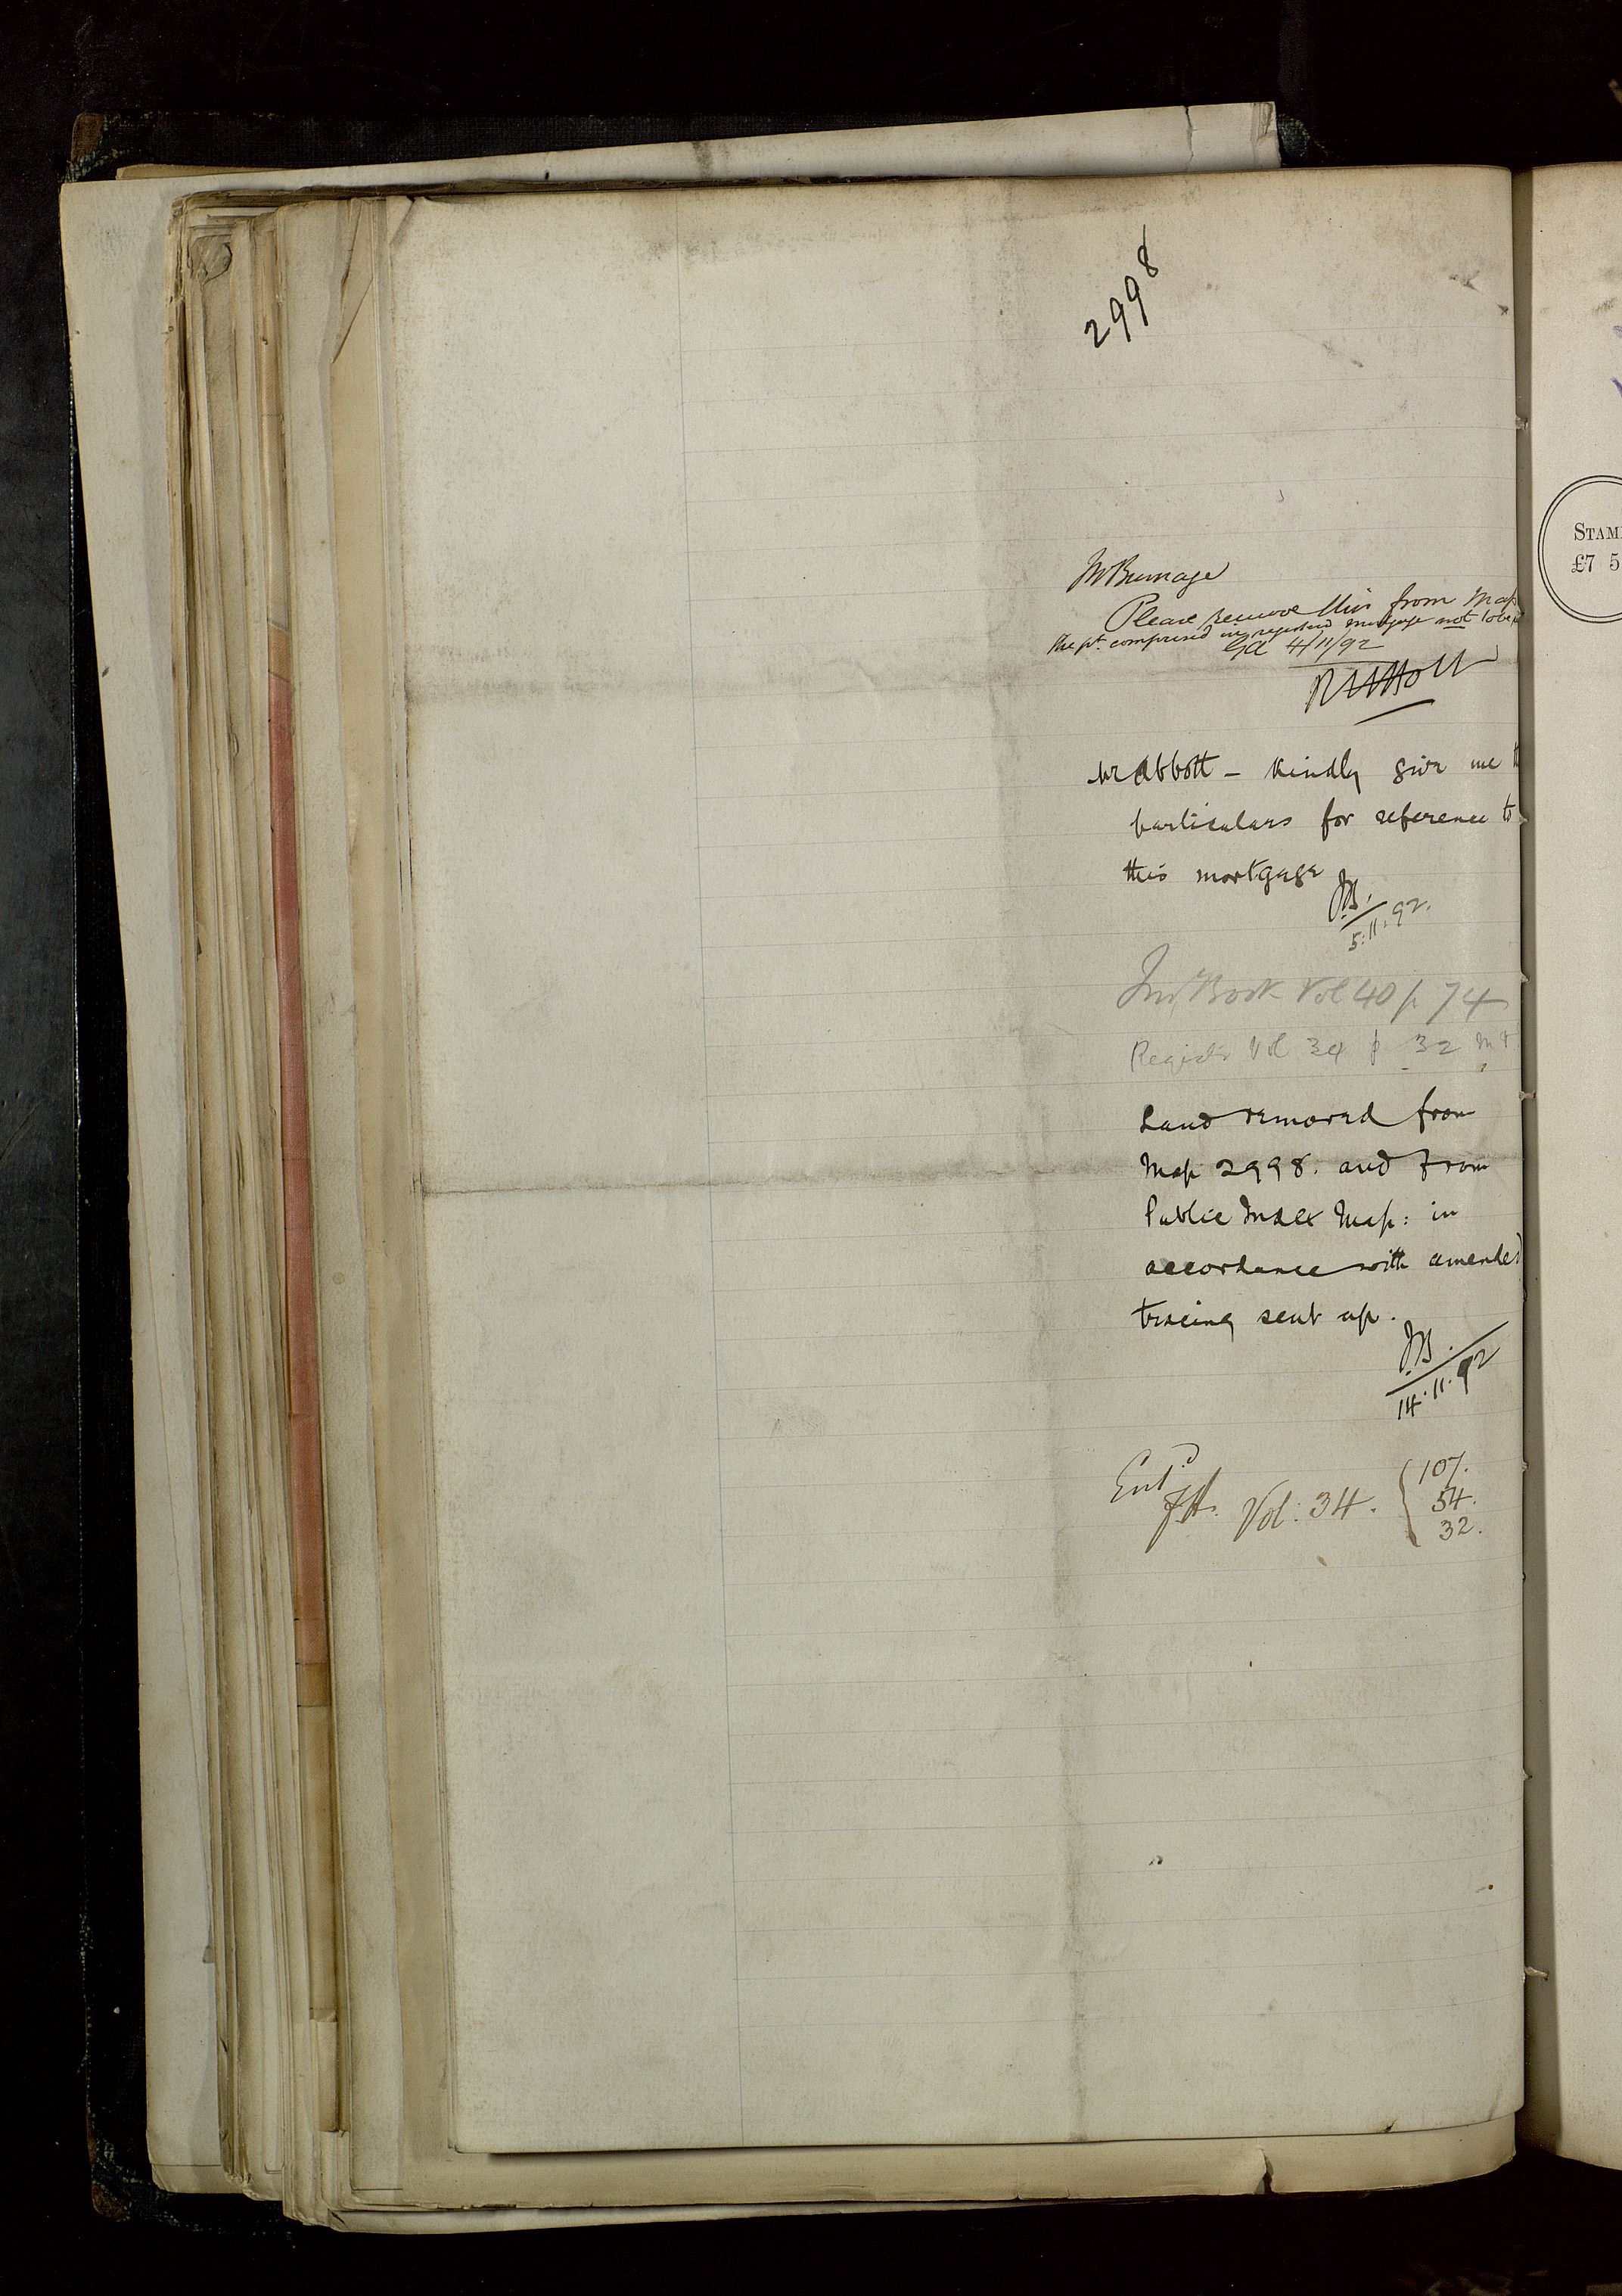 2998
Mr Burnage
Please remove this from Map
the pt. comprised in registered mortgage not to be
GA 4/11/92
Mr Abbott - Kindly give me
particulars for reference to
this mortgage
JB.
5.11.92.
Ins. Book Vol 40 p 74
Register Vol 34 p 32
Land removed from
Map 2998. and from
Public Index Map: in
accordance with amended
tracing sent up.
JB.
14.11.92
Entd. Vol: 34. { 107.
54.
32.
STAM
£7 5